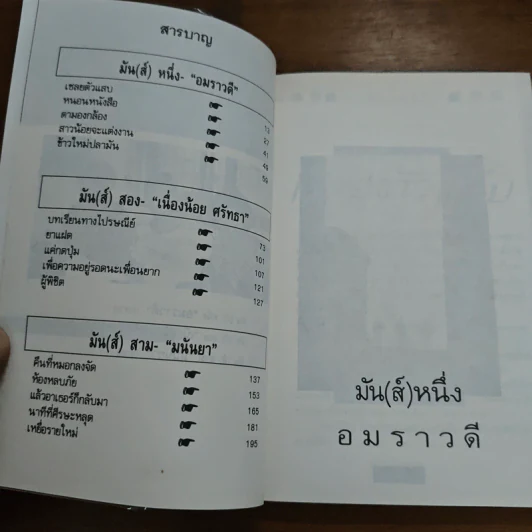 สารบาญ
มัน(ส์) หนึ่ง- “อมราวดี”
เชลยตัวแสบ 13
หนอนหนังสือ 27
ตามองกล้อง 41
สาวน้อยจะแต่งงาน 49
ข้าวใหม่ปลามัน 59
มัน(ส์) สอง- “เนื่องน้อย ศรัทธา”
บทเรียนทางไปรษณีย์ 73
ยาแฝด 101
แค่กดปุ่ม 107
เพื่อความอยู่รอดนะเพื่อนยาก 121
ผู้พิชิต 127
มัน(ส์) สาม- “มนันยา”
คืนที่หมอกลงจัด 137
ห้องหลบภัย 153
แล้วอาเธอร์ก็กลับมา 165
นาทีที่ศีรษะหลุด 181
เหยื่อรายใหม่ 195
มัน(ส์)หนึ่ง
อมราวดี